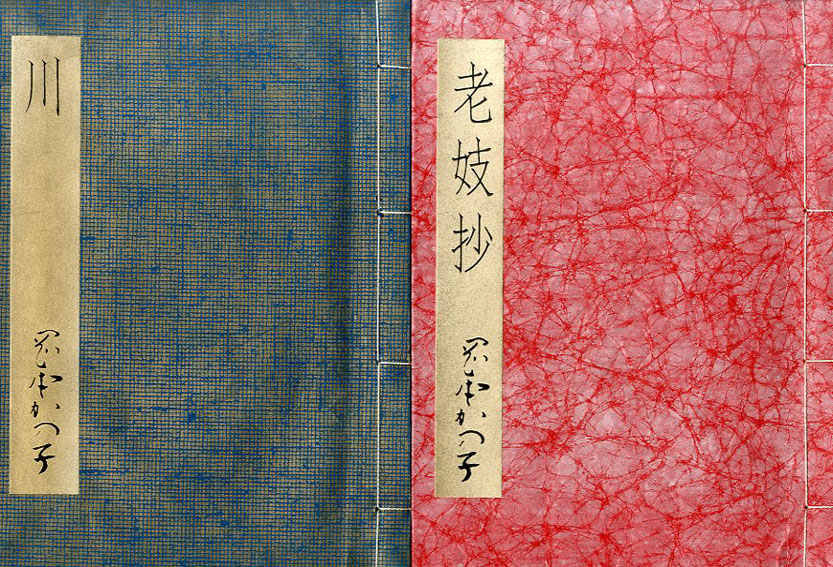 川
岡本かの子
老妓抄
岡本かの子